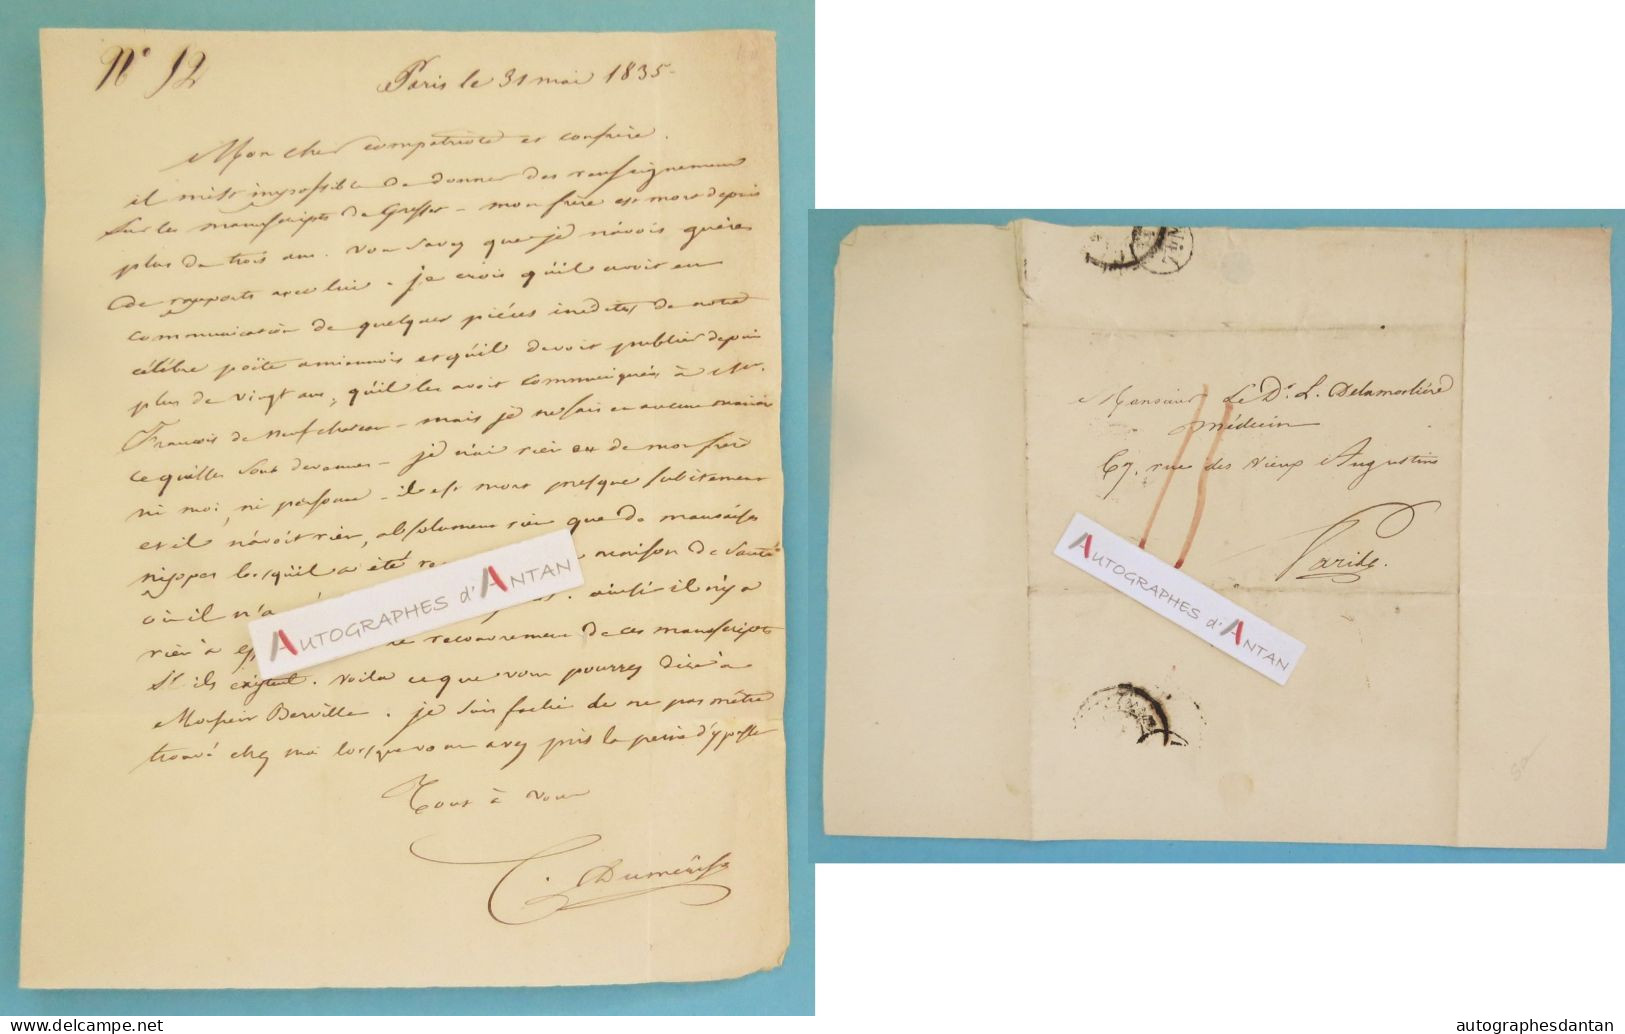 N° 12
Paris le 31 mai 1835-
Mon cher compatriote et confrère.
il m'est impossible de donner des renseignemens
sur les manuscripts de Gresset - mon frère est mort depuis
plus de trois ans. vous savez que je n'avois guères
de rapports avec lui. je crois qu'il avoit eu
communication de quelques pièces inédites de notre
célèbre poëte amiennois et qu'il devoit publier depuis
plus de vingt ans, qu'il les avoit communiquées à Mr.
François de Neufchateau - mais je ne sais en aucune manière
ce qu'elles sont devenues - je n'ai rien eu de mon frère
ni moi, ni personne - il est mort presque subitement
et il n'avoit rien, absolument rien que de mauvaises
nippes lorsqu'il a été maison de santé
où il n'a ainsi il n'y a
rien à recouvrement de ces manuscripts
s'ils existent. voila ce que vous pourrez dire à
Monsieur Berville. je suis faché de ne pas m'être
trouvé chez moi lorsque vous avez pris la peine d'y passer
Tout à vous
C. Duméril
AUTOGRAPHES d'ANTAN
Monsieur Le Dr. L. Delamorlière
médecin
67. rue des vieux Augustins
Paris.
AUTOGRAPHES d'ANTAN
www.delcampe.net
autographesdantan